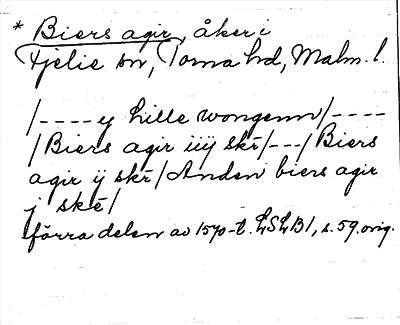 * Biers agir, åker i
Fjelie sn, Torna hd, Malm. l.
/---- y hille wongenn/----
/Biers agir iiij skr/---/Biers
agir ij skr/Anden biers agir
j skr/
förra delen av 1570-t. LSLB1, s. 59. orig.